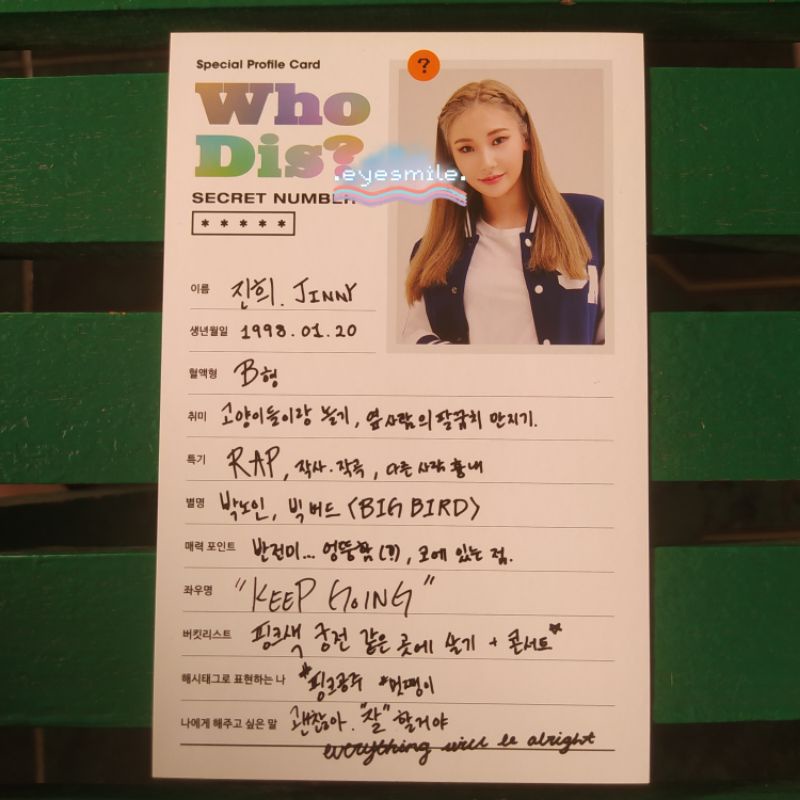 Special Profile Card
?
Who
Dis?
.eyesmile.
SECRET NUMBER
* * * * *
이름 진희. JINNY
생년월일 1998.01.20
혈액형 B형
취미 고양이들이랑 놀기, 옆사람의 팔꿈치 만지기.
특기 RAP, 작사·작곡, 다른 사람 흉내
별명 박노인, 빅버드 <BIG BIRD>
매력 포인트 반전미... 엉뚱함(?), 코에 있는 점.
좌우명 "KEEP GOING"
버킷리스트 핑크색 궁전 같은 곳에 살기 + 콘서트*
해시태그로 표현하는 나 *핑크공주 *멋쟁이
나에게 해주고 싶은 말 괜찮아. "잘" 할거야
everything will be alright